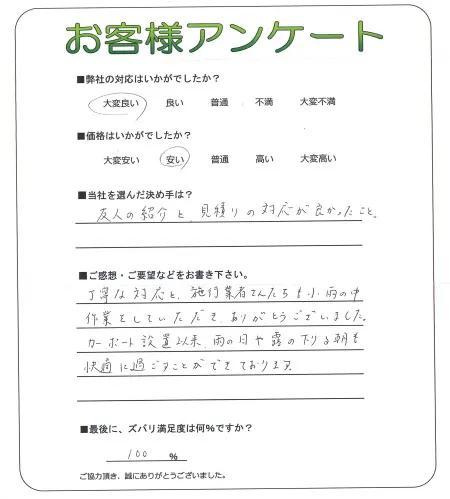 お客様アンケート
■弊社の対応はいかがでしたか？
大変良い 良い 普通 不満 大変不満
■価格はいかがでしたか？
大変安い 安い 普通 高い 大変高い
■当社を選んだ決め手は？
友人の紹介と、見積りの対応が良かったこと。
■ご感想・ご要望などをお書き下さい。
丁寧な対応と、施行業者さんたちも小雨の中
作業をしていただき、ありがとうございました。
カーポート設置以来、雨の日や露の下りる朝も
快適に過ごすことができております。
■最後に、ズバリ満足度は何％ですか？
100 ％
ご協力頂き、誠にありがとうございました。